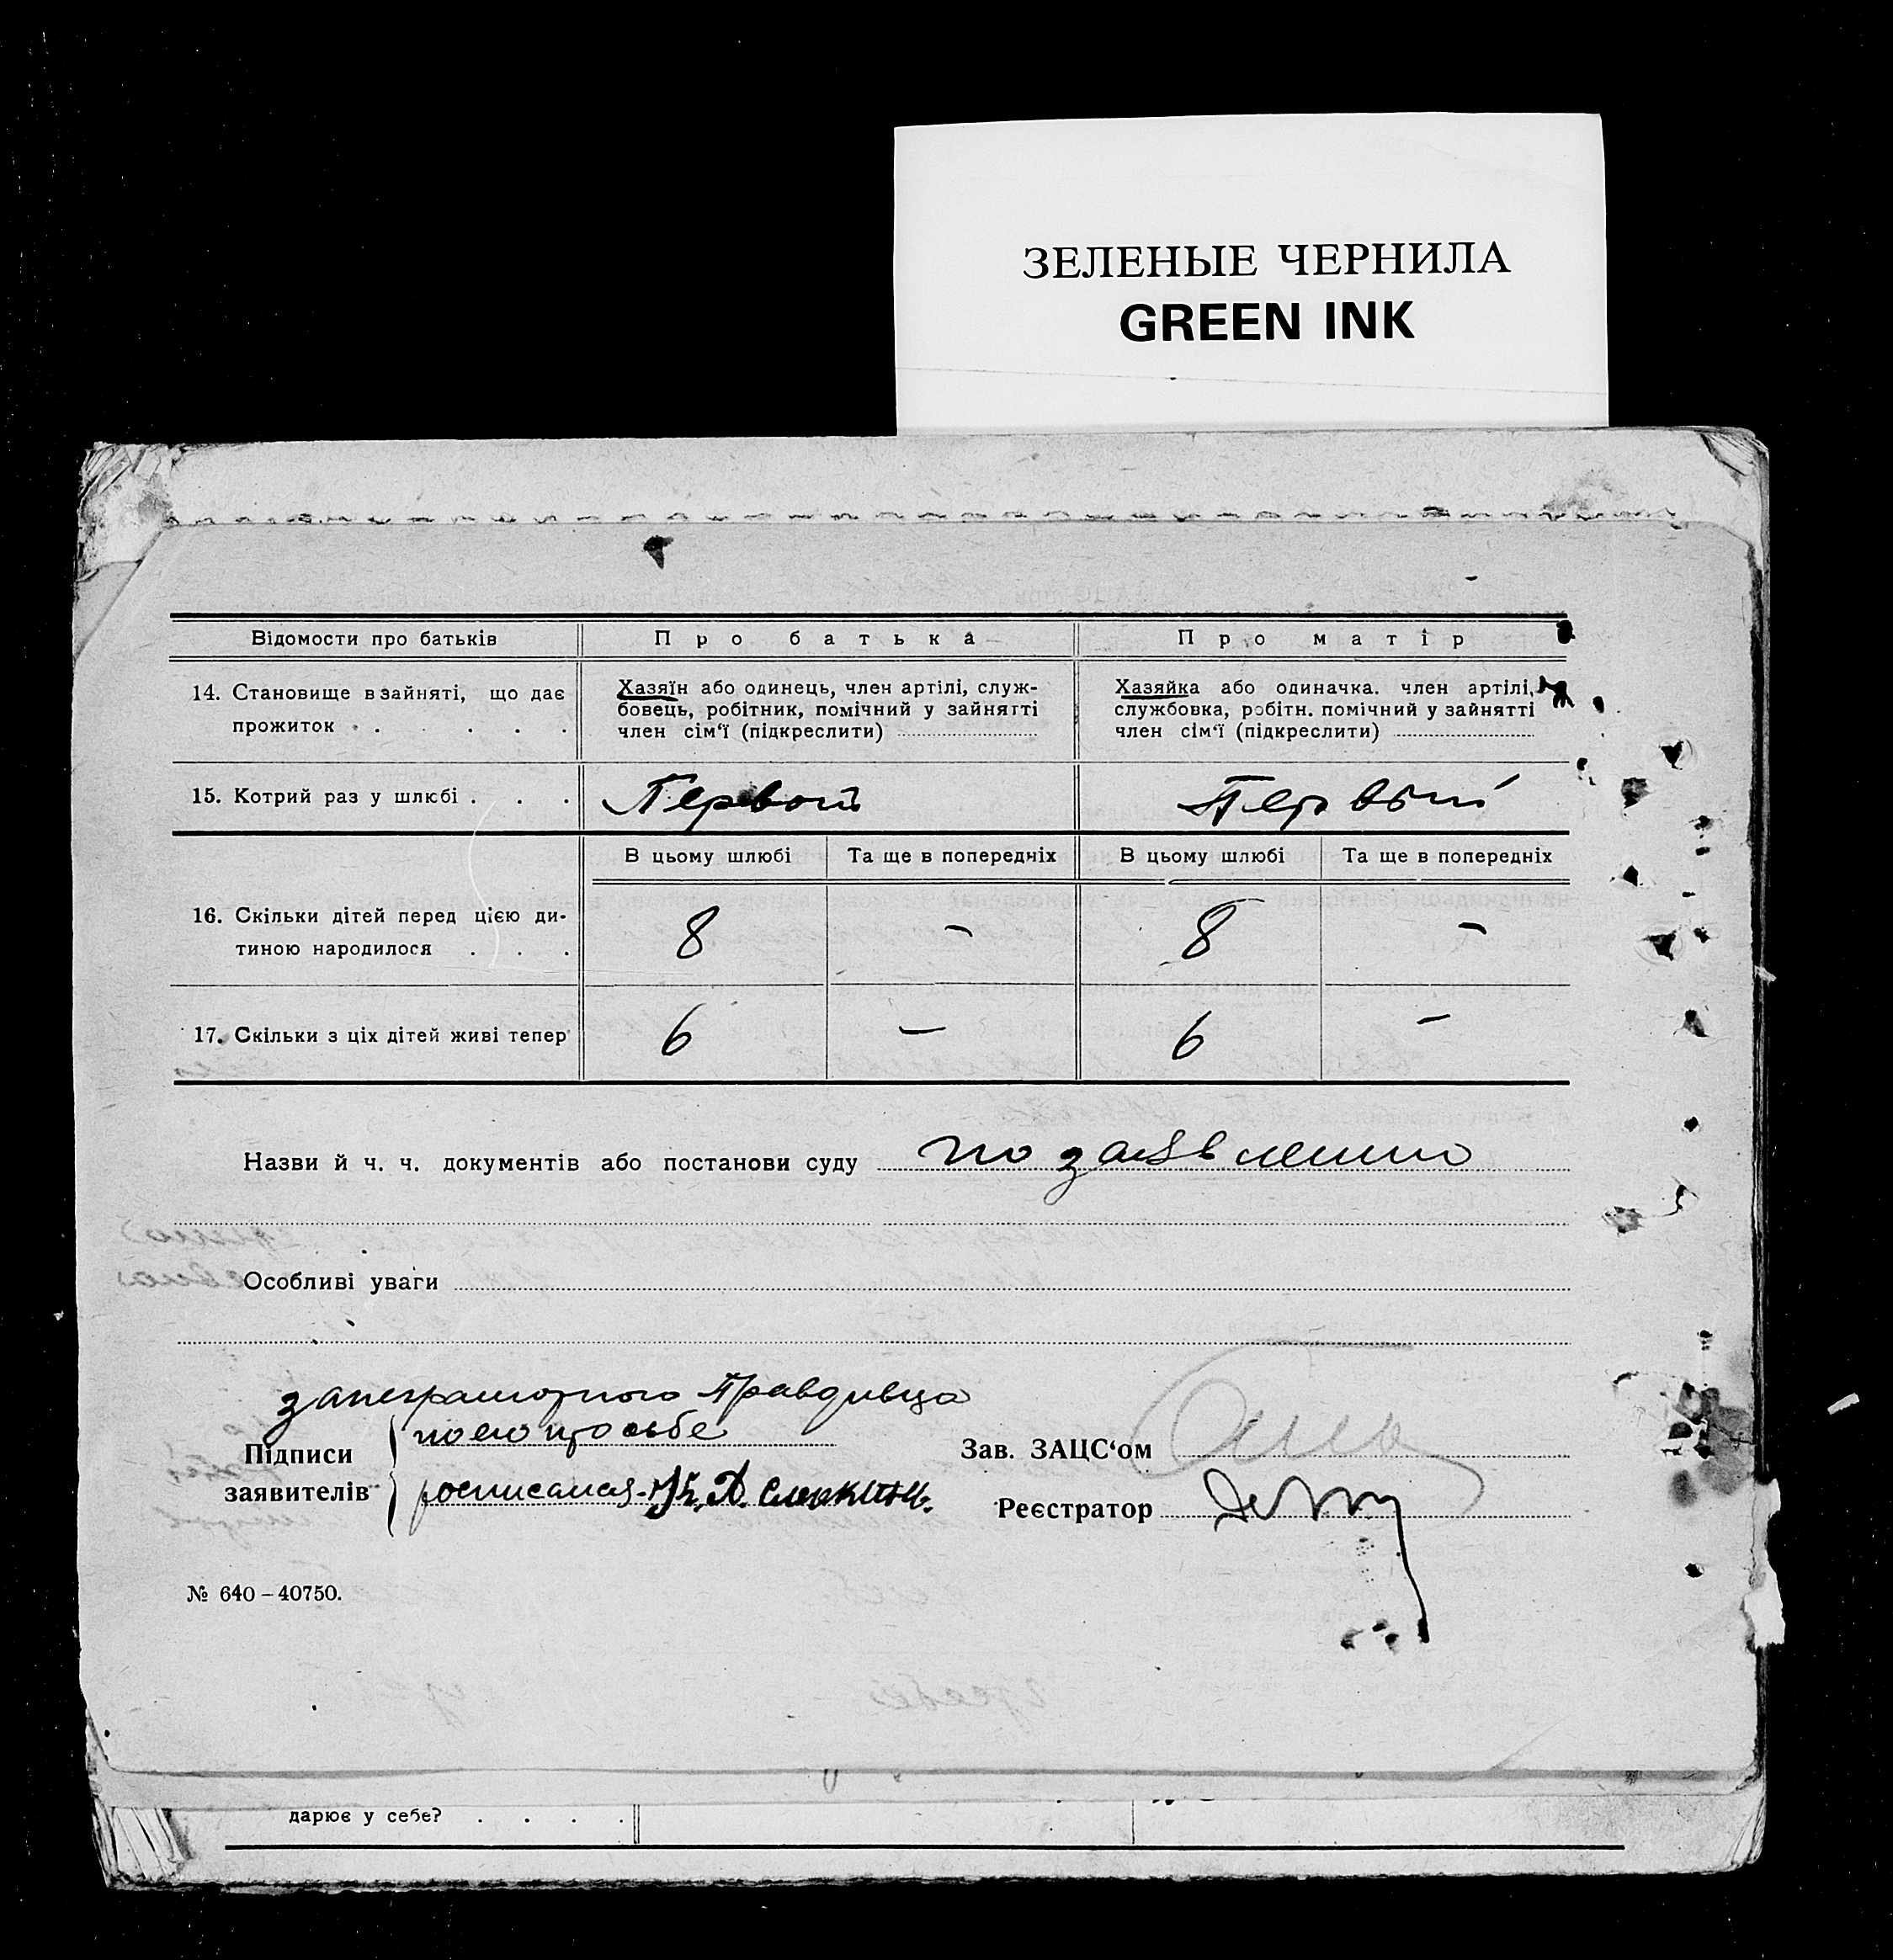 ЗЕЛЕНЫЕ ЧЕРНИЛА
GREEN INK
Відомости про батьків Про батька Про матір
14. Становище в зайняті, що дає прожиток . . . . .
Хазяїн або одинець, член артілі, служ-
бовець, робітник, помічний у зайнятті
член сім‘ї (підкреслити)
Хазяйка або одиначка. член артілі,
службовка, робітн. помічний у зайнятті
член сім‘ї (підкреслити)
15. Котрий раз у шлюбі . . . Первой Первый
В цьому шлюбі Та ще в попередніх В цьому шлюбі Та ще в попередніх
16. Скільки дітей перед цією ди-
тиною народилося . . . 8 – 8 –
17. Скільки з ціх дітей живі тепер 6 – 6 –
Назви й ч. ч. документів або постанови суду по заявлению
Особливі уваги
за неграмотного Правдивца
Підписи
заявителів
по его просьбе
росписался
Зав. ЗАЦС‘ом
Реєстратор
№ 640–40750.
дарює у себе? . . . .